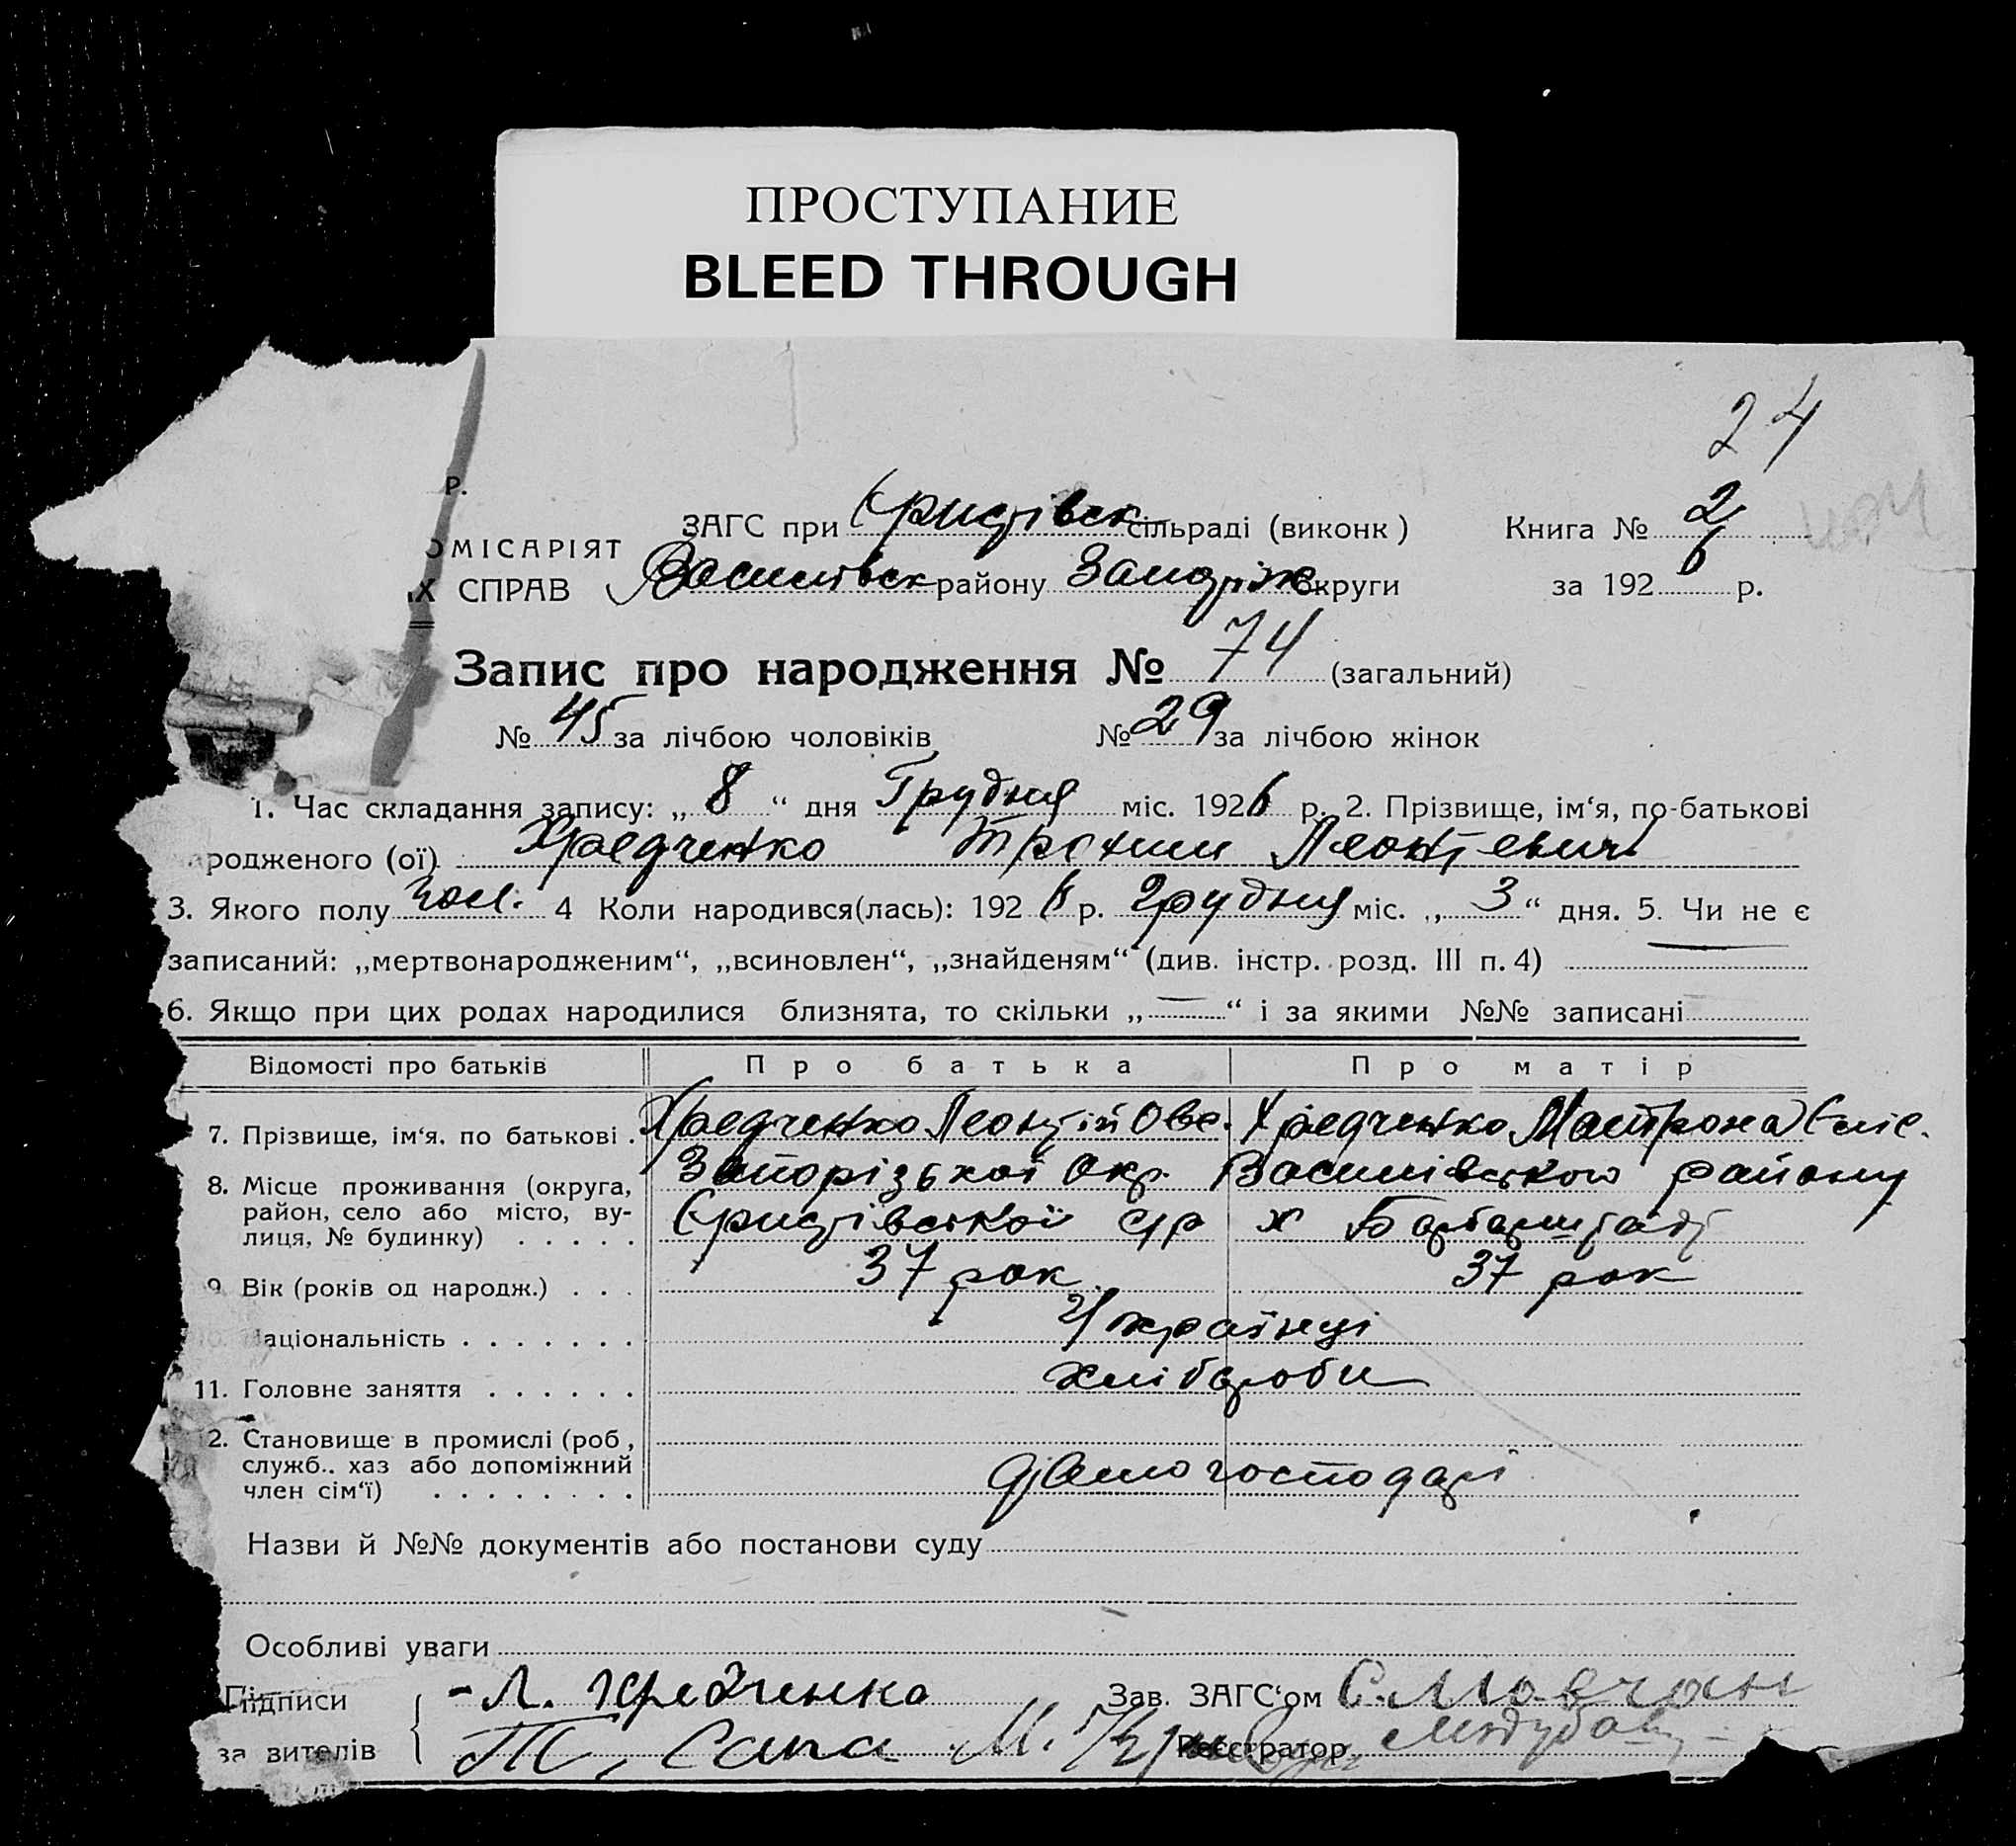 ПРОСТУПАНИЕ
BLEED THROUGH
24
Р.
ЗАГС при Єристівск сільраді (виконк) Книга № 2
ОМІСАРІЯТ
Х СПРАВ Василівск району Запоріж округи за 1926 р.
Запис про народження № 74 (загальний)
№ 45 за лічбою чоловіків № 29 за лічбою жінок
1. Час складання запису: „ 8 “ дня Грудня міс. 1926 р. 2. Прізвище, ім‘я, по-батькові
родженого (ої) Хредченко Трохим Леонтієвич
3. Якого полу чол. 4 Коли народився(лась): 1926 р. Грудня міс. „ 3 “ дня. 5. Чи не є
записаний: „мертвонародженим“, „всиновлен“, „знайденям“ (див. інстр. розд. III п. 4)
6. Якщо при цих родах народилися близнята, то скільки „ — “ і за якими №№ записані
Відомості про батьків Про батька Про матір
7. Прізвище, ім‘я. по батькові . Хредченко Леонтій Овс. Хредченко Мотрона
8. Місце проживання (округа, Запорізької Окр. Василівського району
район, село або місто, ву- Єристівської с/р х
лиця, № будинку) . . . . .
9. Вік (років од народж.) . . . 37 рок 37 рок
аціональність . . . . . . . Українці
11. Головне заняття . . . . . . хлібороби
2. Становище в промислі (роб,
служб.. хаз або допоміжний господарі
член сім‘ї) . . . . . . . .
Назви й №№ документів або постанови суду
Особливі уваги
Підписи - Л. Хредченко Зав. ЗАГС‘ом С. Мовчан
за вителів Т. Сапа М. Реєстратор